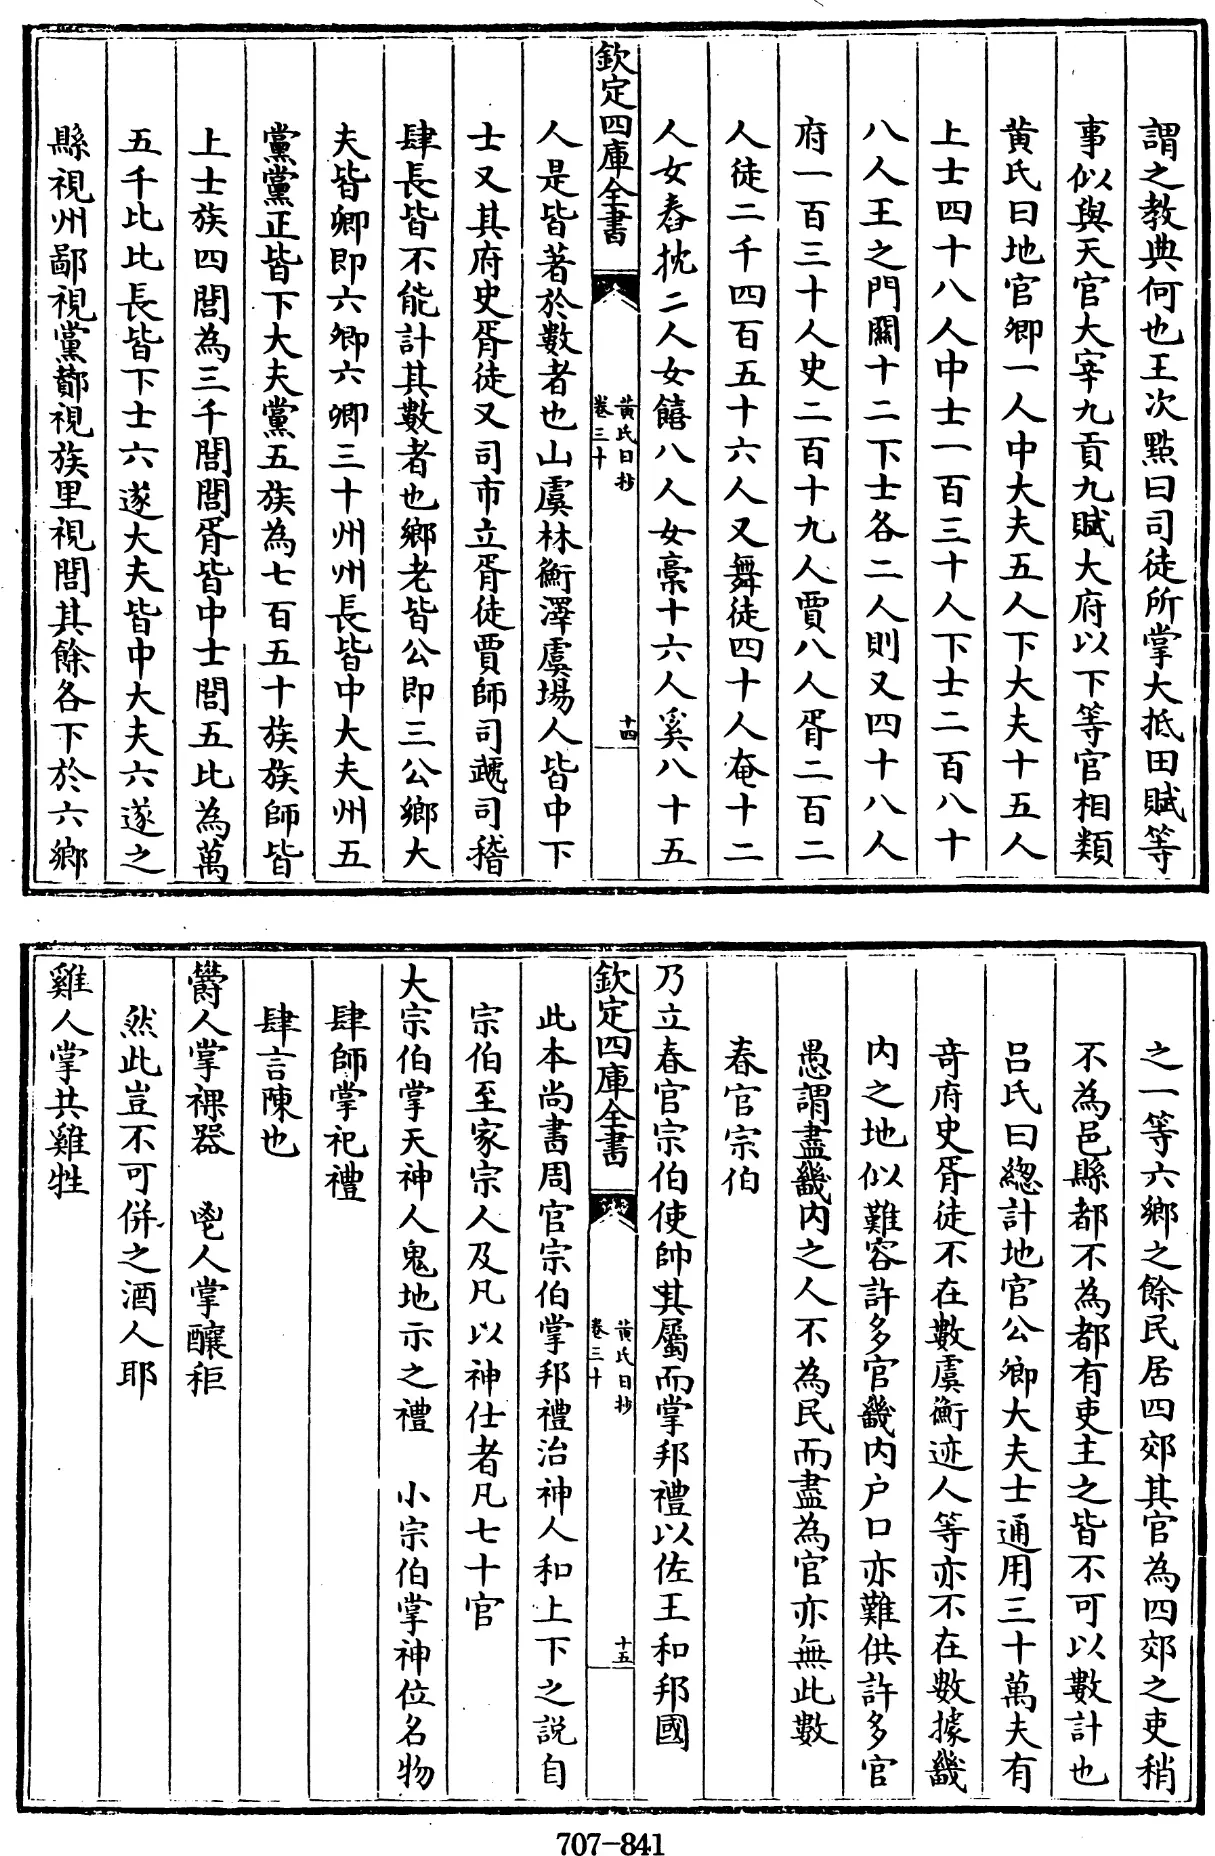 謂之教典何也王次㸃曰司徒所掌大抵田賦等
事似與天官大宰九貢九賦大府以下等官相類
黄氏曰地官卿一人中大夫五人下大夫十五人
上士四十八人中士一百三十人下士二百八十
八人王之門關十二下士各二人則又四十八人
府一百三十人史二百十九人賈八人胥二百二
人徒二千四百五十六人又舞徒四十人奄十二
人女舂抌二人女饎八人女稾十六人奚八十五
欽定四庫全書
黄氏日抄
卷三十
十四
人是皆著於數者也山虞林衡澤虞場人皆中下
士又其府史胥徒又司市立胥徒賈師司虣司稽
肆長皆不能計其數者也鄉老皆公即三公鄉大
夫皆卿即六卿六卿三十州州長皆中大夫州五
黨黨正皆下大夫黨五族為七百五十族族師皆
上士族四閭為三千閭閭胥皆中士閭五比為萬
五千比比長皆下士六遂大夫皆中大夫六遂之
縣視州鄙視黨酇視族里視閭其餘各下於六鄉
之一等六鄉之餘民居四郊其官為四郊之吏稍
不為邑縣都不為都有吏主之皆不可以數計也
吕氏曰總計地官公卿大夫士通用三十萬夫有
竒府史胥徒不在數虞衡迹人等亦不在數據畿
内之地似難容許多官畿内户口亦難供許多官
愚謂盡畿内之人不為民而盡為官亦無此數
春官宗伯
乃立春官宗伯使帥其屬而掌邦禮以佐王和邦國
欽定四庫全書
黄氏日抄
卷三十
十五
此本尚書周官宗伯掌邦禮治神人和上下之説自
宗伯至家宗人及凡以神仕者凡七十官
大宗伯掌天神人鬼地示之禮 小宗伯掌神位名物
肆師掌祀禮
肆言陳也
鬱人掌祼器 鬯人掌釀秬
然此豈不可併之酒人耶
雞人掌共雞牲
707-841